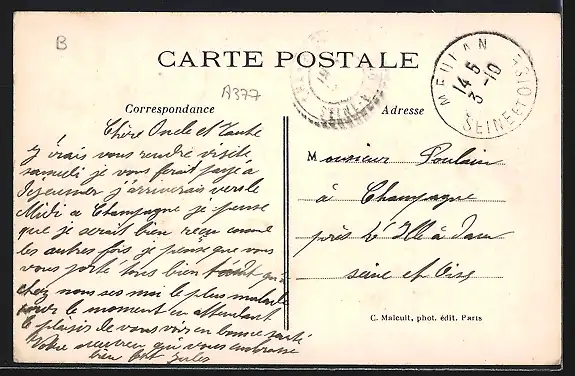 B
CARTE POSTALE
A377
MEULAN
14-5
3-10
SEINE ET OISE
Correspondance
Adresse
Chère Oncle et Tante
J'irais vous rendre visite
samedi je vous ferait à
Dejeuner j'arriverais vers le
Midi a Champagne je pense
que je serait bien reçu comme
les autres fois je pense que vous
vous porté tous bien
chez nous ses moi le plus malade
pour le moment en attendant
le plaisir de vous voir en bonne santé
Votre neuveu qui vous embrasse
bien fort Jules
Monsieur Poulain
à Champagne
près L'Isle à Dam
seine et Oise
C. Malcuit, phot. édit. Paris